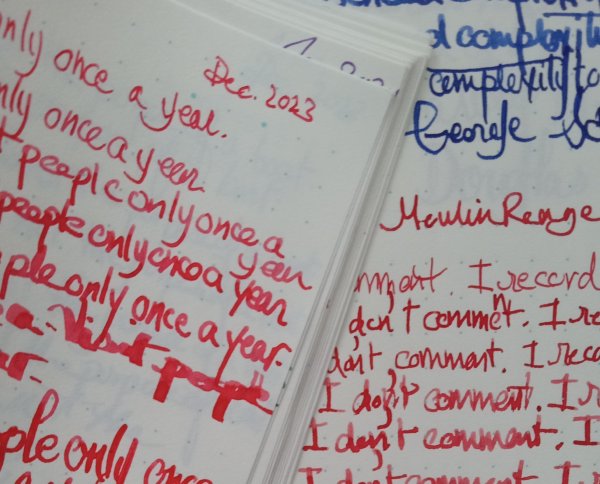 only once a year.
Dec. 2023
only once a year
peaple only once a
year
people only once a year
ple only once a year.
a. Visit peopl
ple only once
complexity
complexity to
George
Moulin Rouge
mment. I record
don't comment. I re
don't comment. I reco
I don't comment. I r
I don't comment, I
I don't comment. I r